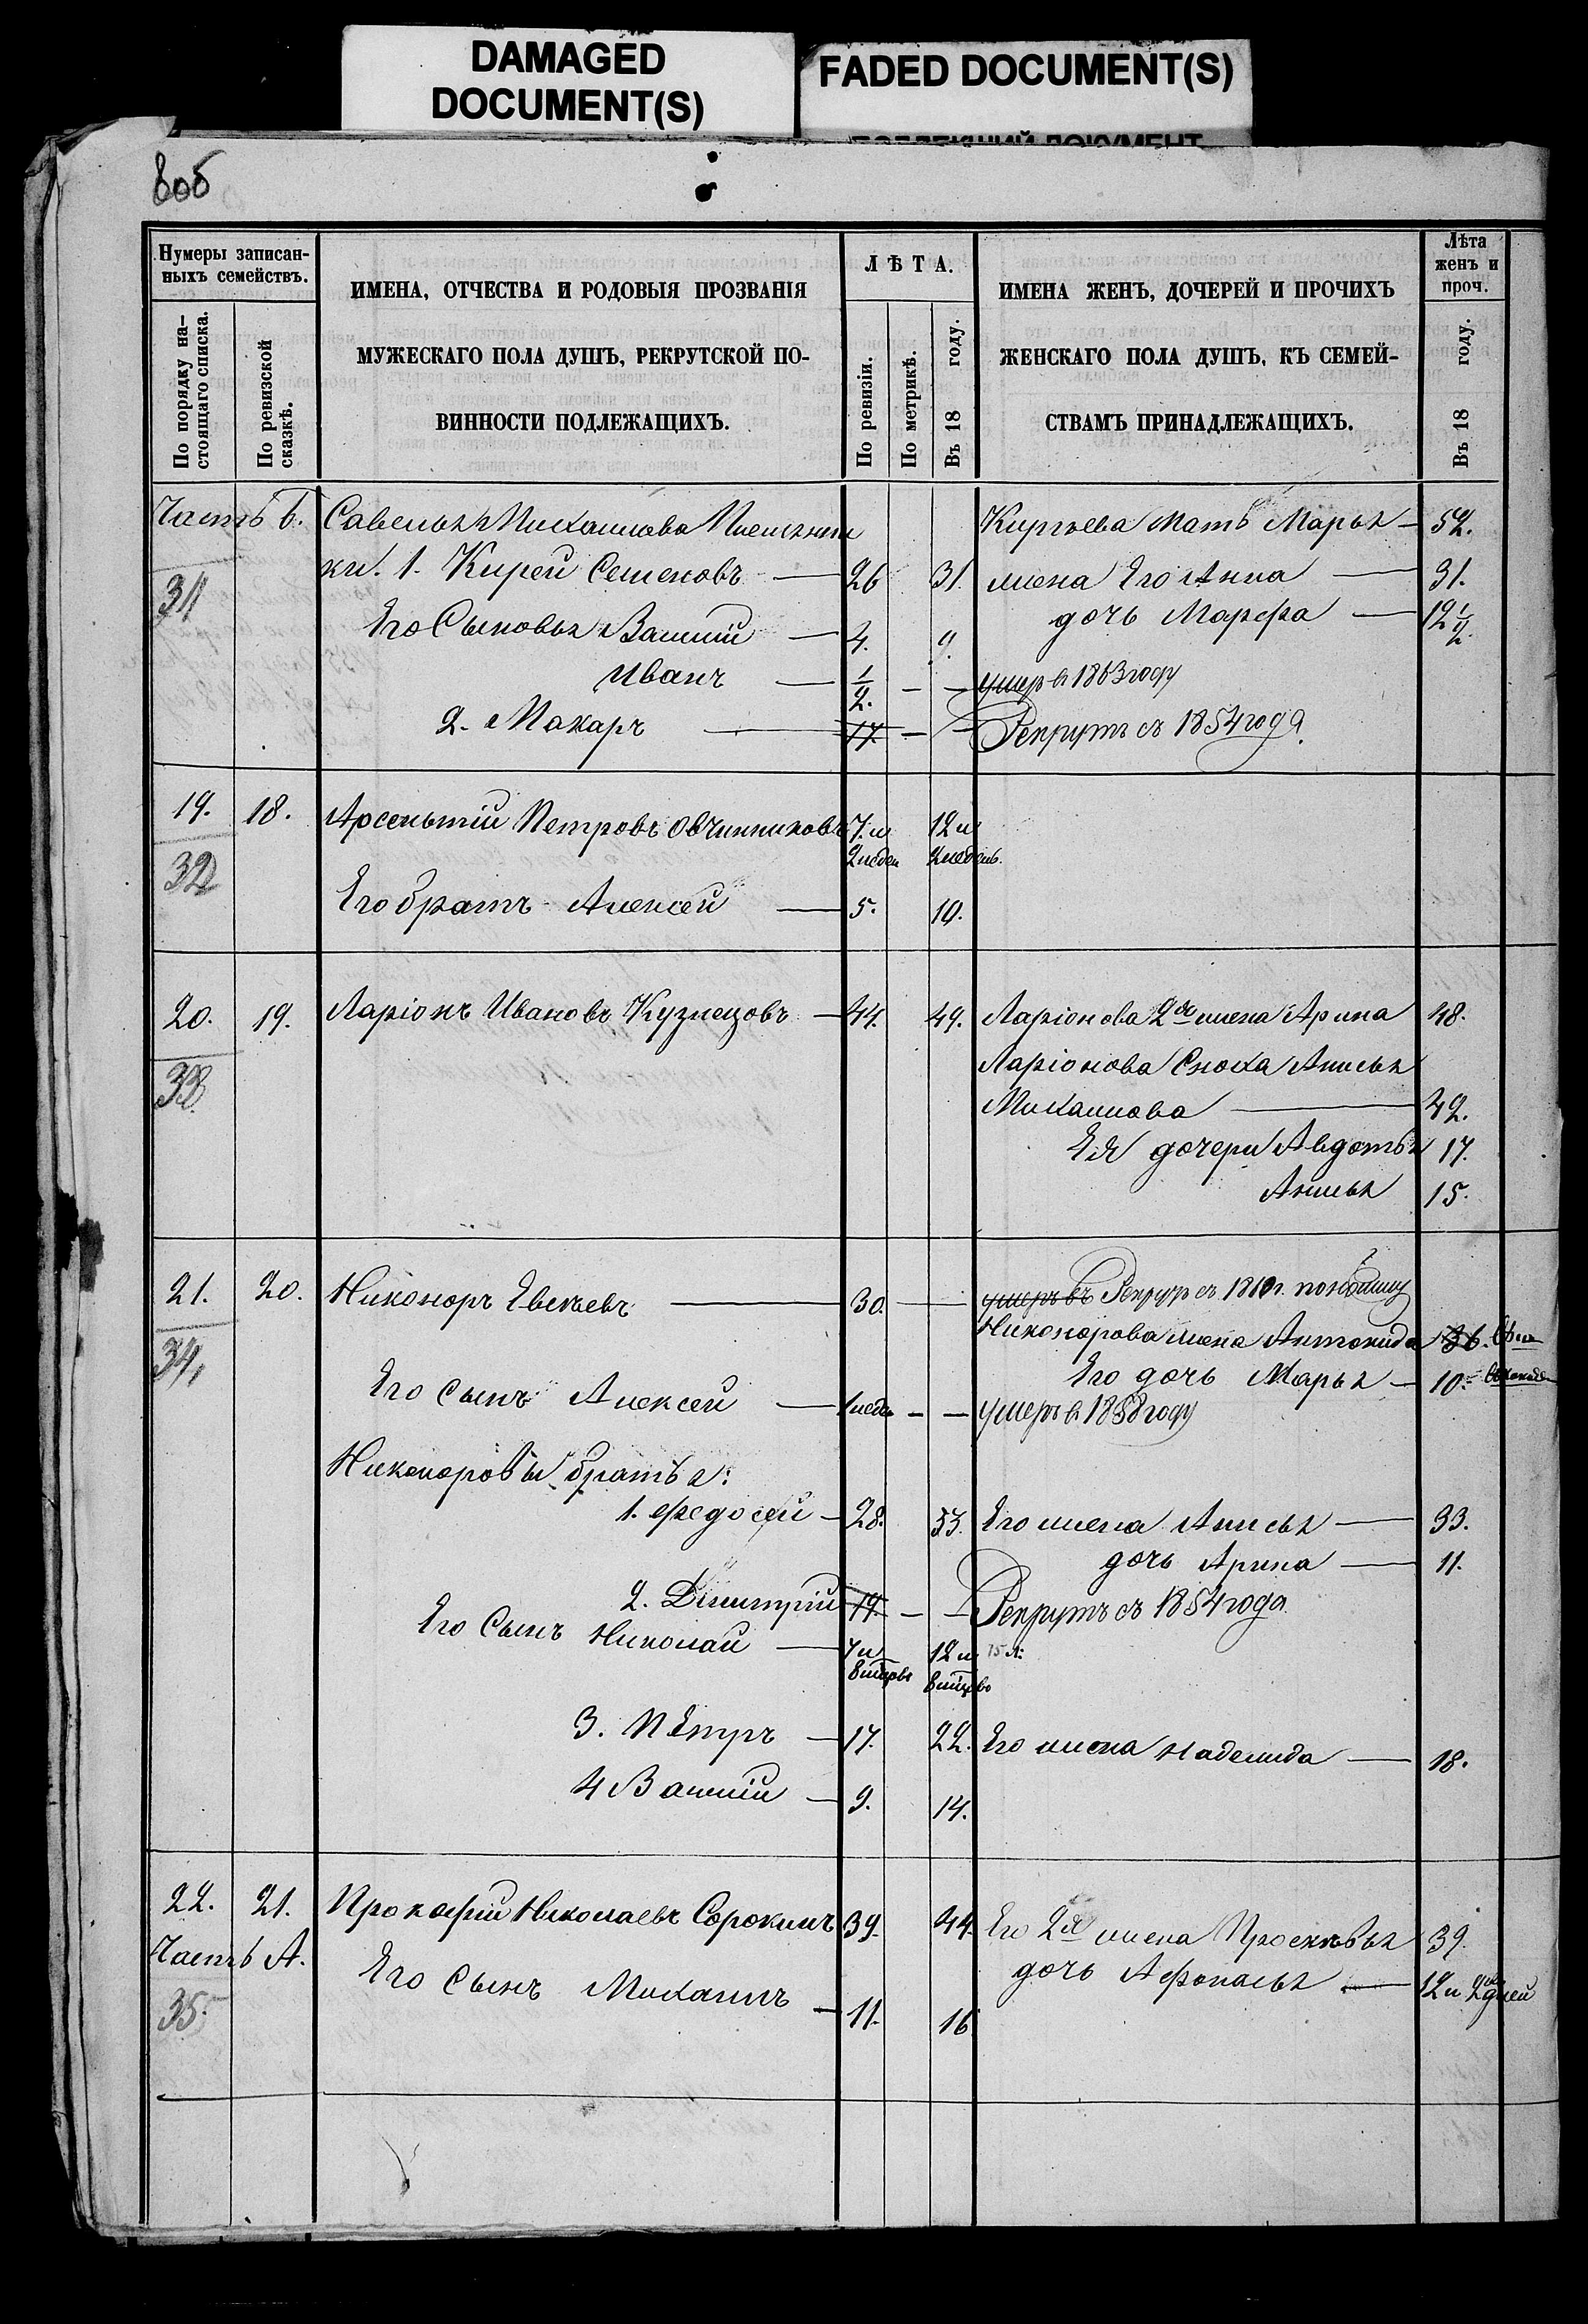 DAMAGED
DOCUMENT(S)
FADED DOCUMENT(S)
8об
Нумеры записан-
ныхъ семействъ.
По порядку на-
стоящаго списка.
По ревизской
сказкѣ.
ИМЕНА, ОТЧЕСТВА И РОДОВЫЯ ПРОЗВАНІЯ
МУЖЕСКАГО ПОЛА ДУШЪ, РЕКРУТСКОЙ ПО-
ВИННОСТИ ПОДЛЕЖАЩИХЪ.
ЛѢТА.
По ревизіи.
По метрикѣ.
Въ 18 году.
ИМЕНА ЖЕНЪ, ДОЧЕРЕЙ И ПРОЧИХЪ
ЖЕНСКАГО ПОЛА ДУШЪ, КЪ СЕМЕЙ-
СТВАМЪ ПРИНАДЛЕЖАЩИХЪ.
Лѣта
женъ и
проч.
Въ 18 году.
Часть Б. Савелья Михаилова Племянни Киргѣева Мать Марья — 52.
31 ки. 1. Кирей Семеновъ — 26 31. жена Его Анна — 31.
Его Сыновья Василій — 4. 9. дочь Марфа — 12 1/2
Иванъ — 1/2. — — умеръ в 1863 году
2. Макаръ — 17. — — Рекрутъ съ 1854 года.
19. 18. Арсентій Петровъ Овчинниковъ 7. и 12 и
32 2 недѣл 2 недѣль.
Его братъ Алексей — 5. 10.
20. 19. Ларіонъ Ивановъ Кузнецовъ — 44. 49. Ларіонова 2я жена Арина 48.
33 Ларіонова Сноха Анисья
Михаилова — 42.
Ея дочери Авдотья 17.
Анисья 15.
21. 20. Никоноръ Евсѣевъ — 30. — — умеръ въ Рекрут съ
34, Никонорова жена Антонида 36.
Его дочь Марья — 10.
Его сынъ Алексей — 1 недѣл — — умеръ в 1858 году
Никоноровы братья:
1. Федосей — 28. 33. Его жена Анисья — 33.
дочь Арина — 11.
2. Дмитрій 19. — — Рекрутъ съ 1854 года.
Его Сынъ Николай — 7 и 12 и 15 л:
8 мѣцовъ 8 мѣцовъ
3. Пѣтръ — 17. 22. Его жена Надежда — 18.
4 Василій — 9. 14.
22. 21. Прокофій Николаевъ Сорокинъ 39. 44. Его 2я жена Просковья 39.
Часть А. Его Сынъ Михаилъ — 11. 16 дочь Афонасья — 12 и 2 дней
35.